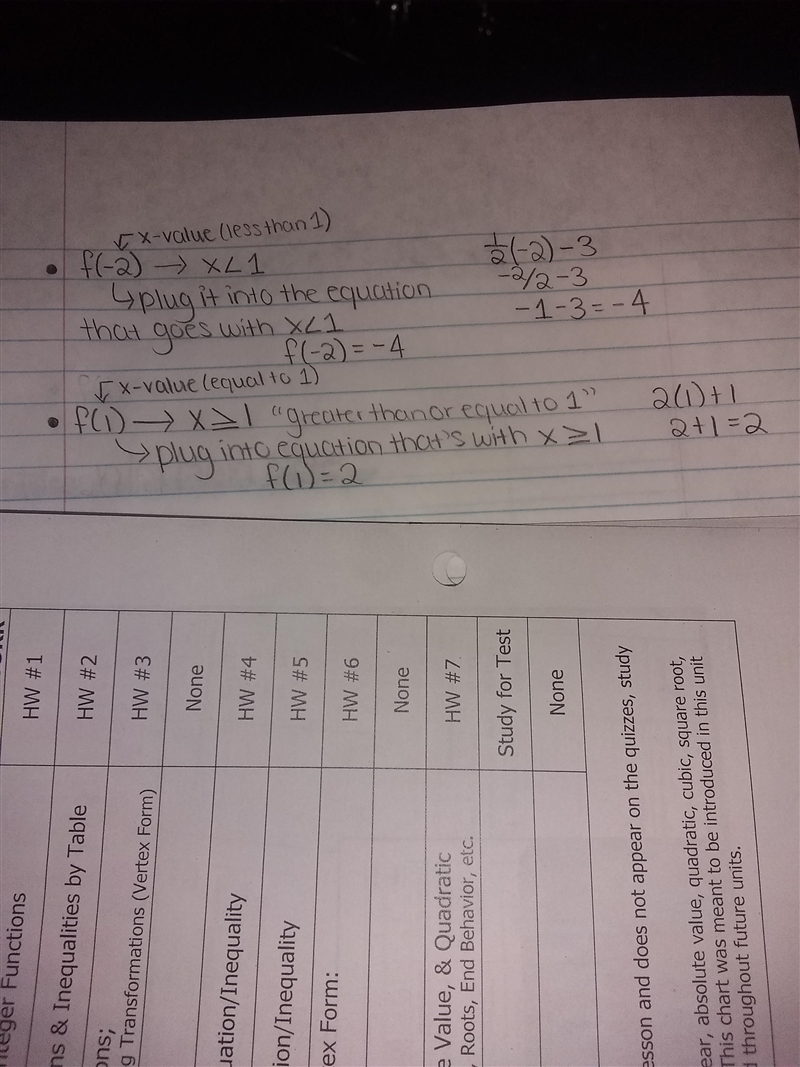 x-value (less than 1)
• f(-2) → x < 1
↳ plug it into the equation
that goes with x < 1
f(-2) = -4
½(-2) - 3
-2/2 - 3
-1 - 3 = -4
x-value (equal to 1)
• f(1) → x ≥ 1 "greater than or equal to 1"
↳ plug into equation that's with x ≥ 1
f(1) = 2
2(1) + 1
2 + 1 = 2
HW #1
Functions
HW #2
& Inequalities by Table
HW #3
Transformations (Vertex Form)
None
HW #4
uation/Inequality
HW #5
ion/Inequality
HW #6
ex Form:
None
HW #7
e Value, & Quadratic
Roots, End Behavior, etc.
Study for Test
None
esson and does not appear on the quizzes, study
ear, absolute value, quadratic, cubic, square root,
This chart was meant to be introduced in this unit
d throughout future units.